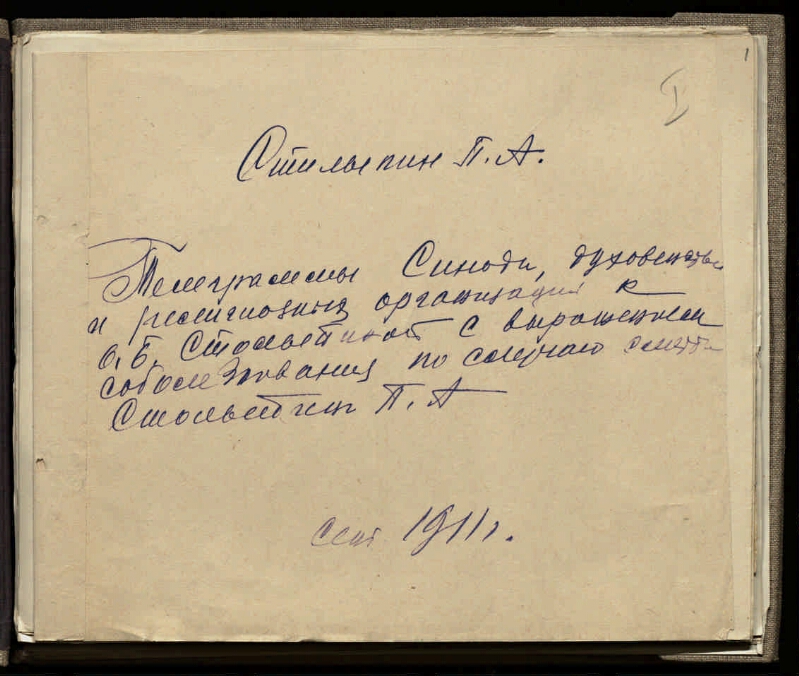 1
I
Столыпин П. А.
Телеграммы Синода, духовенства
и религиозных организаций к
О. Б. Столыпиной с выражением
соболезнования по случаю смерти
Столыпина П. А
сент 1911 г.